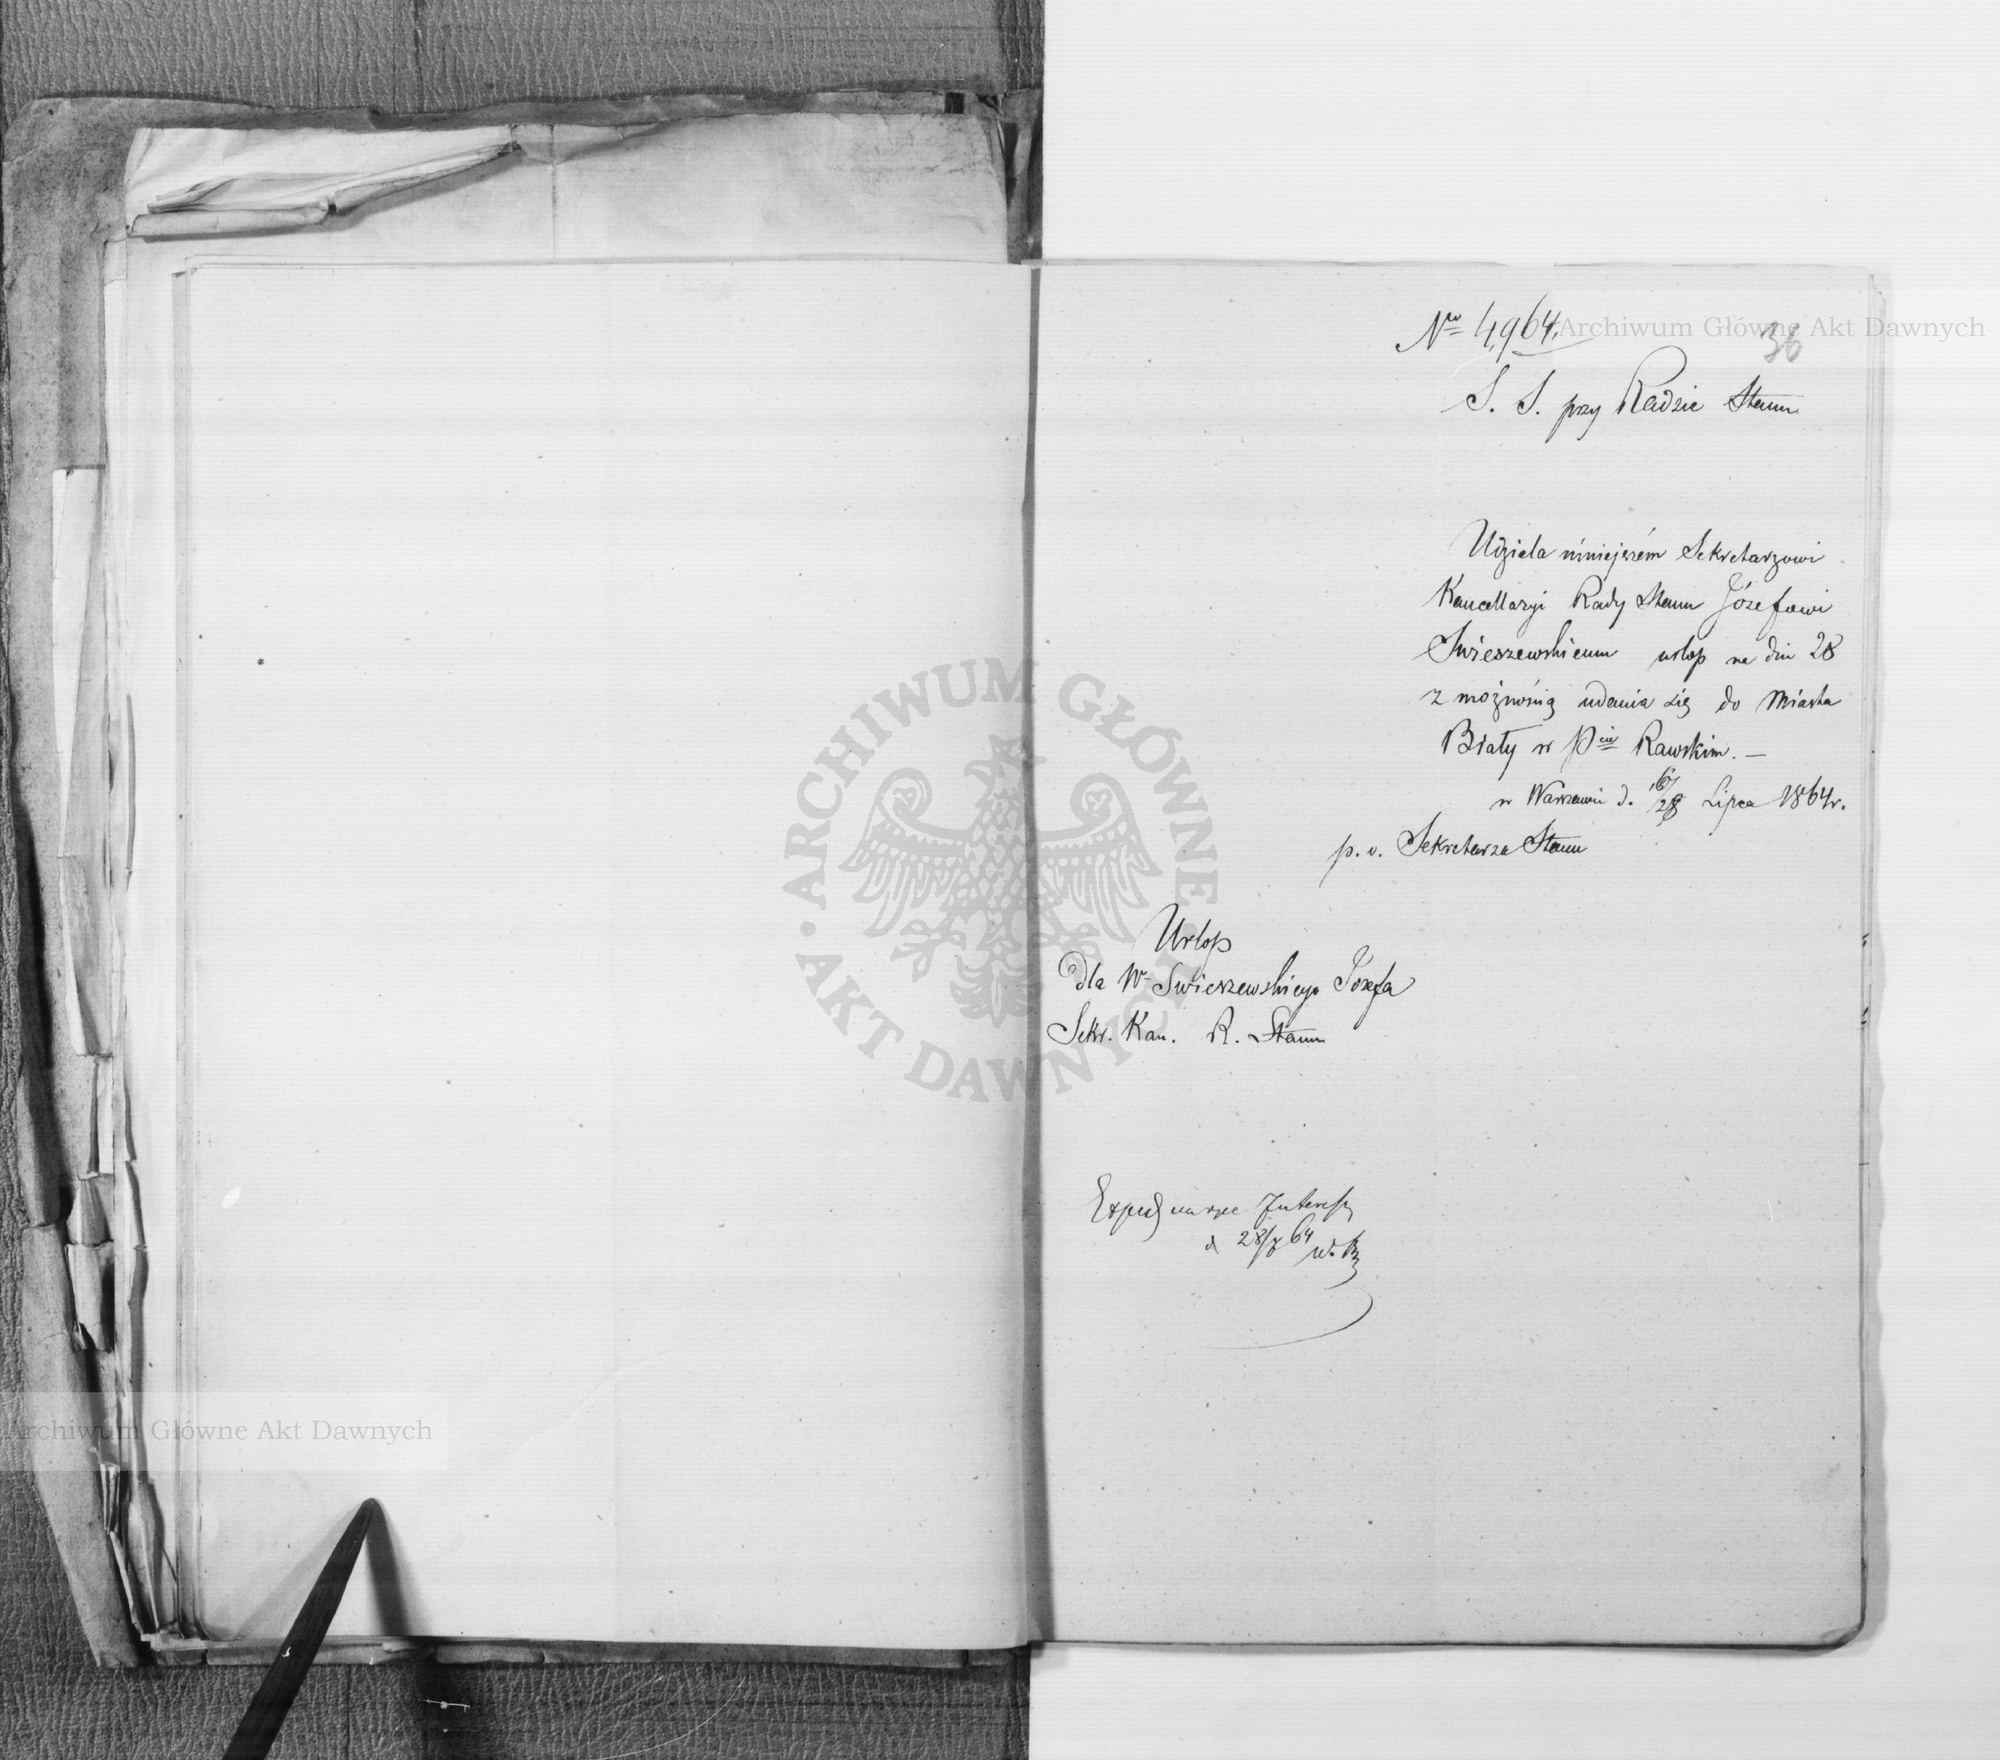 Nro 4,964.
36
S. S. przy Radzie Stanu
Udziela niniejszém Sekretarzowi
Kancellaryi Rady Stanu Józefowi
Swieszewskiemu urlop na dni 28
z możnością udania się do Miasta
Biały w Pcie Rawskim. —
w Warszawie d. 16/28 Lipca 1864 r.
p. o. Sekretarza Stanu
Urlop
dla W Swieszewskiego Józefa
Sekr. Kan. R. Stanu
na ręce Interess
d 28/7 64
Archiwum Główne Akt Dawnych
· ARCHIWUM GŁÓWNE · AKT DAWNYCH
Archiwum Główne Akt Dawnych